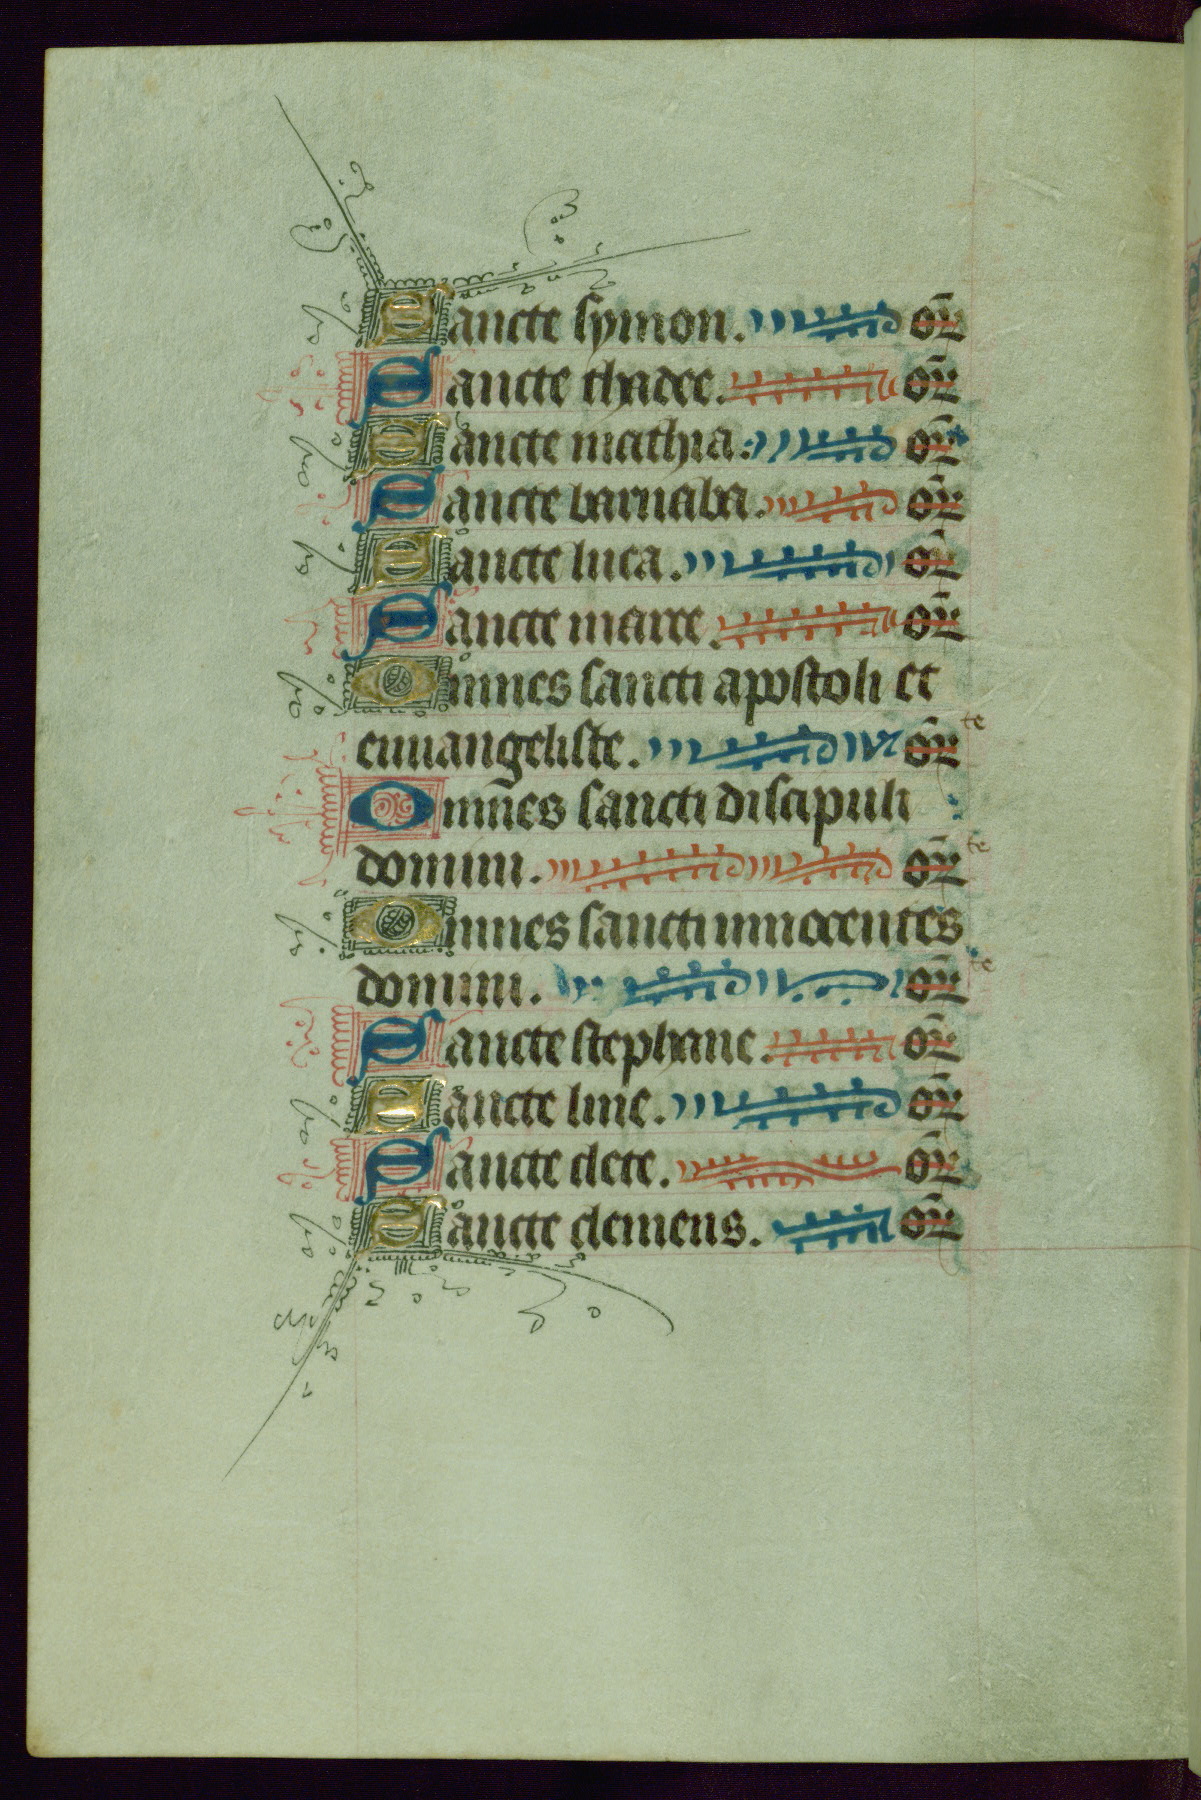 Sancte symon. or
Sancte thadee. or
Sancte mathia. or
Sancte barnaba. or
Sancte luca. or
Sancte marce. or
Omnes sancti apostoli et
euuangeliste. or te
Om̄es sancti discipuli
domini. or te
Omnes sancti innocentes
domini. or te
Sancte stephane. or
Sancte line. or
Sancte clete. or
Sancte clemens. or